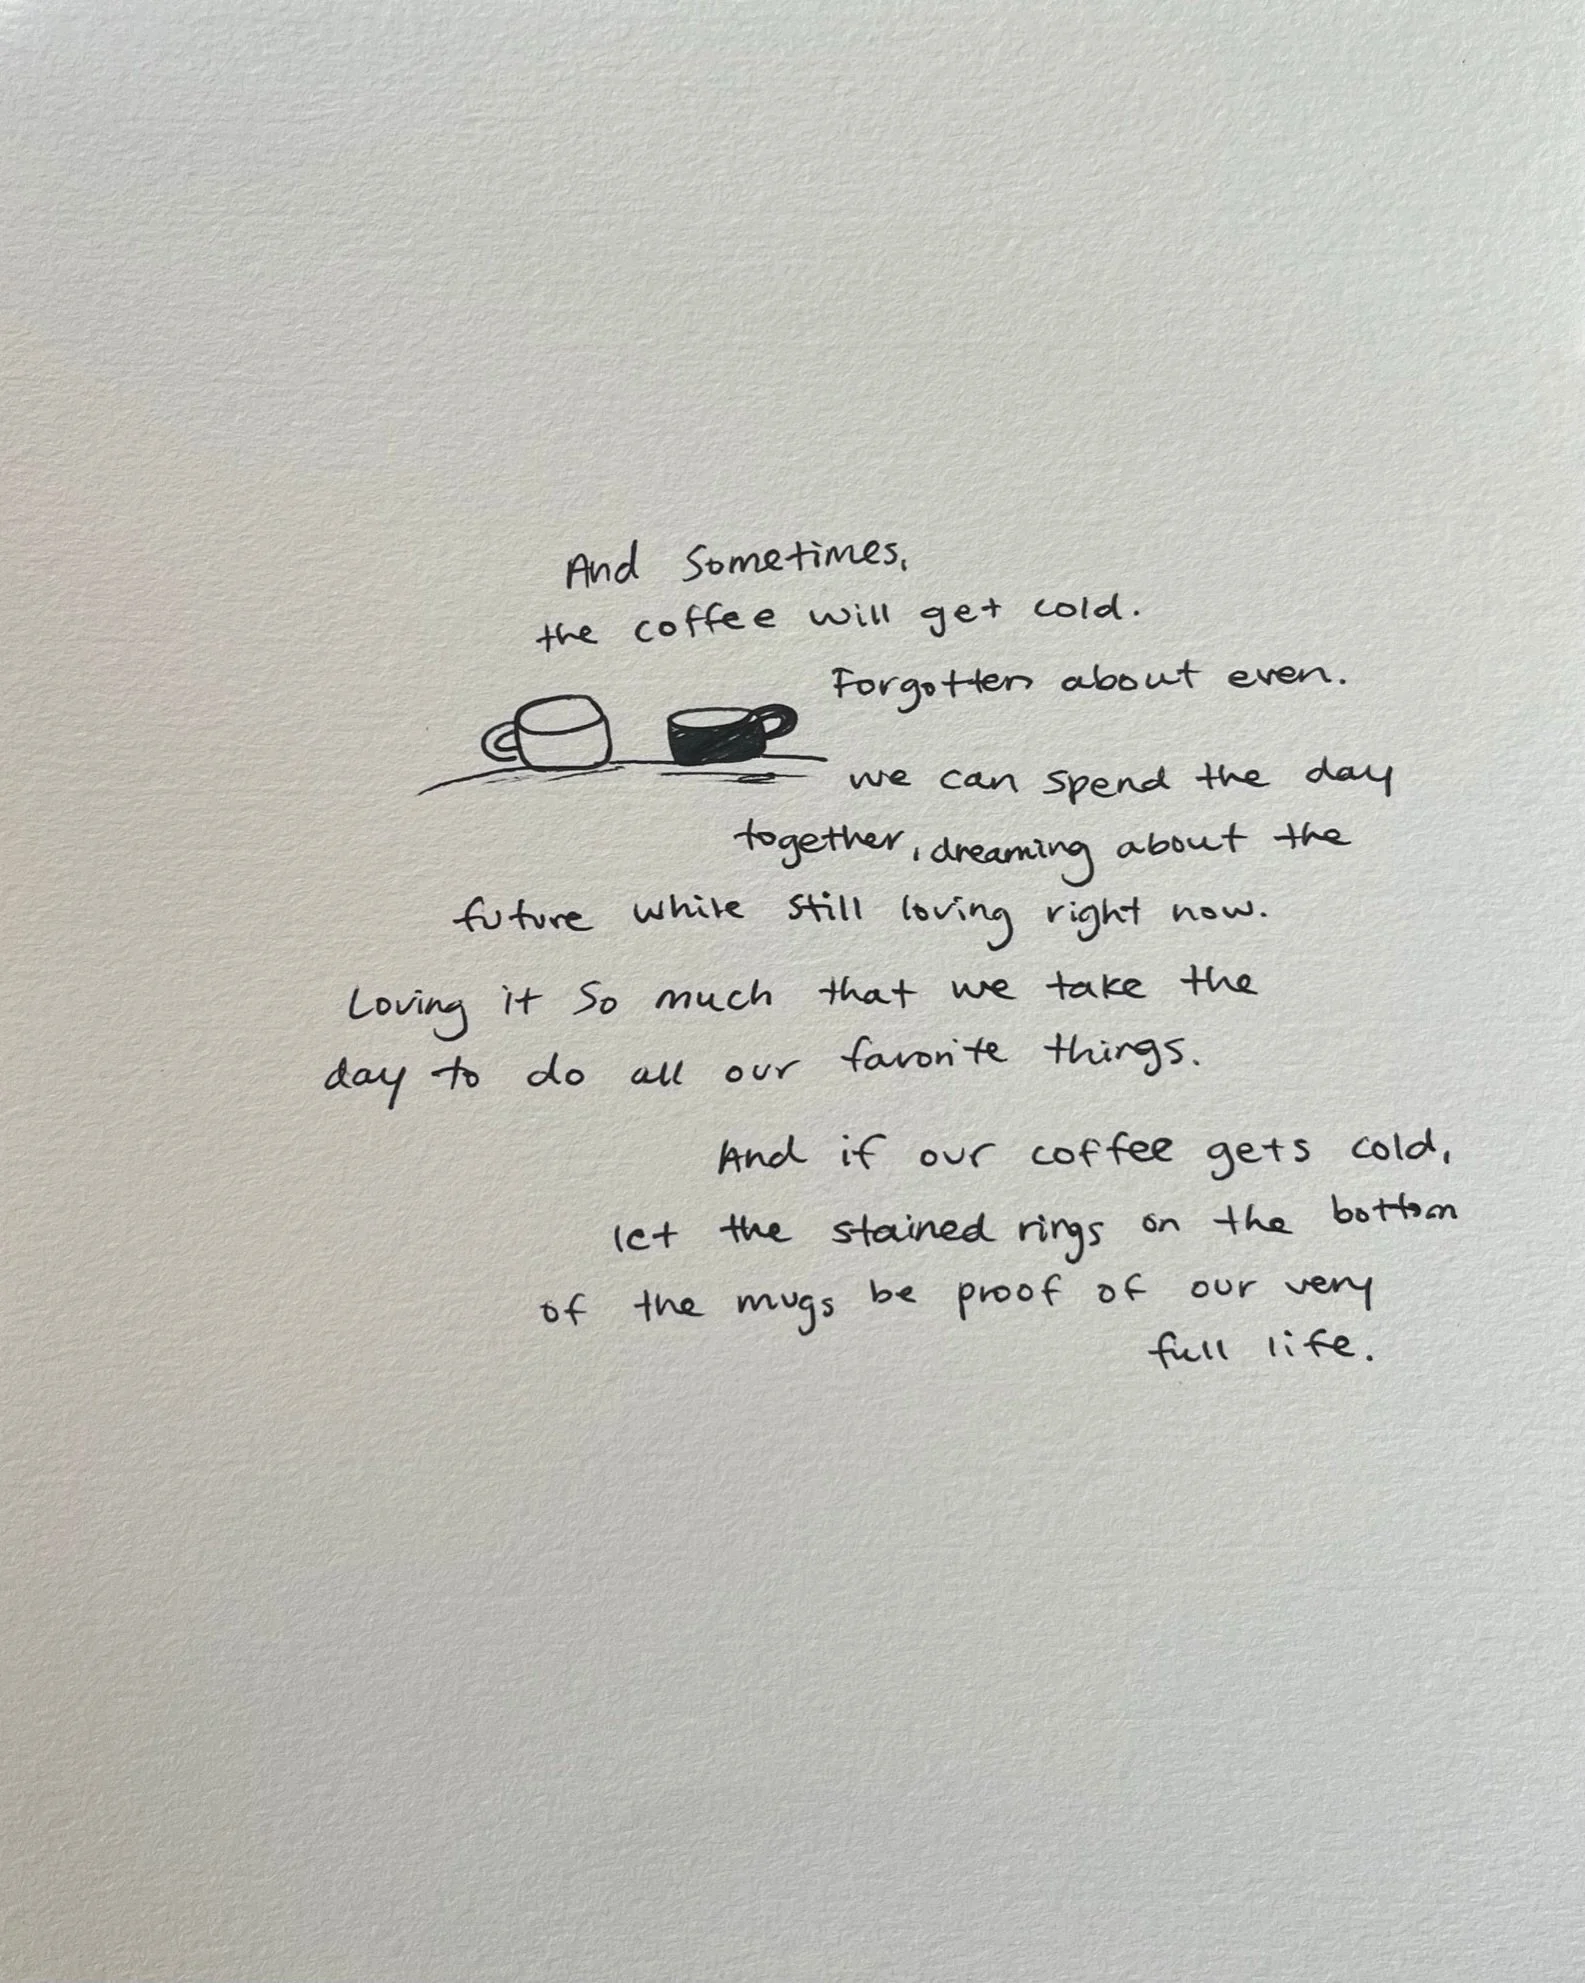 And Sometimes,
the coffee will get cold.
Forgotten about even.
we can spend the day
together, dreaming about the
future while still loving right now.
Loving it so much that we take the
day to do all our favorite things.
And if our coffee gets cold,
let the stained rings on the bottom
of the mugs be proof of our very
full life.